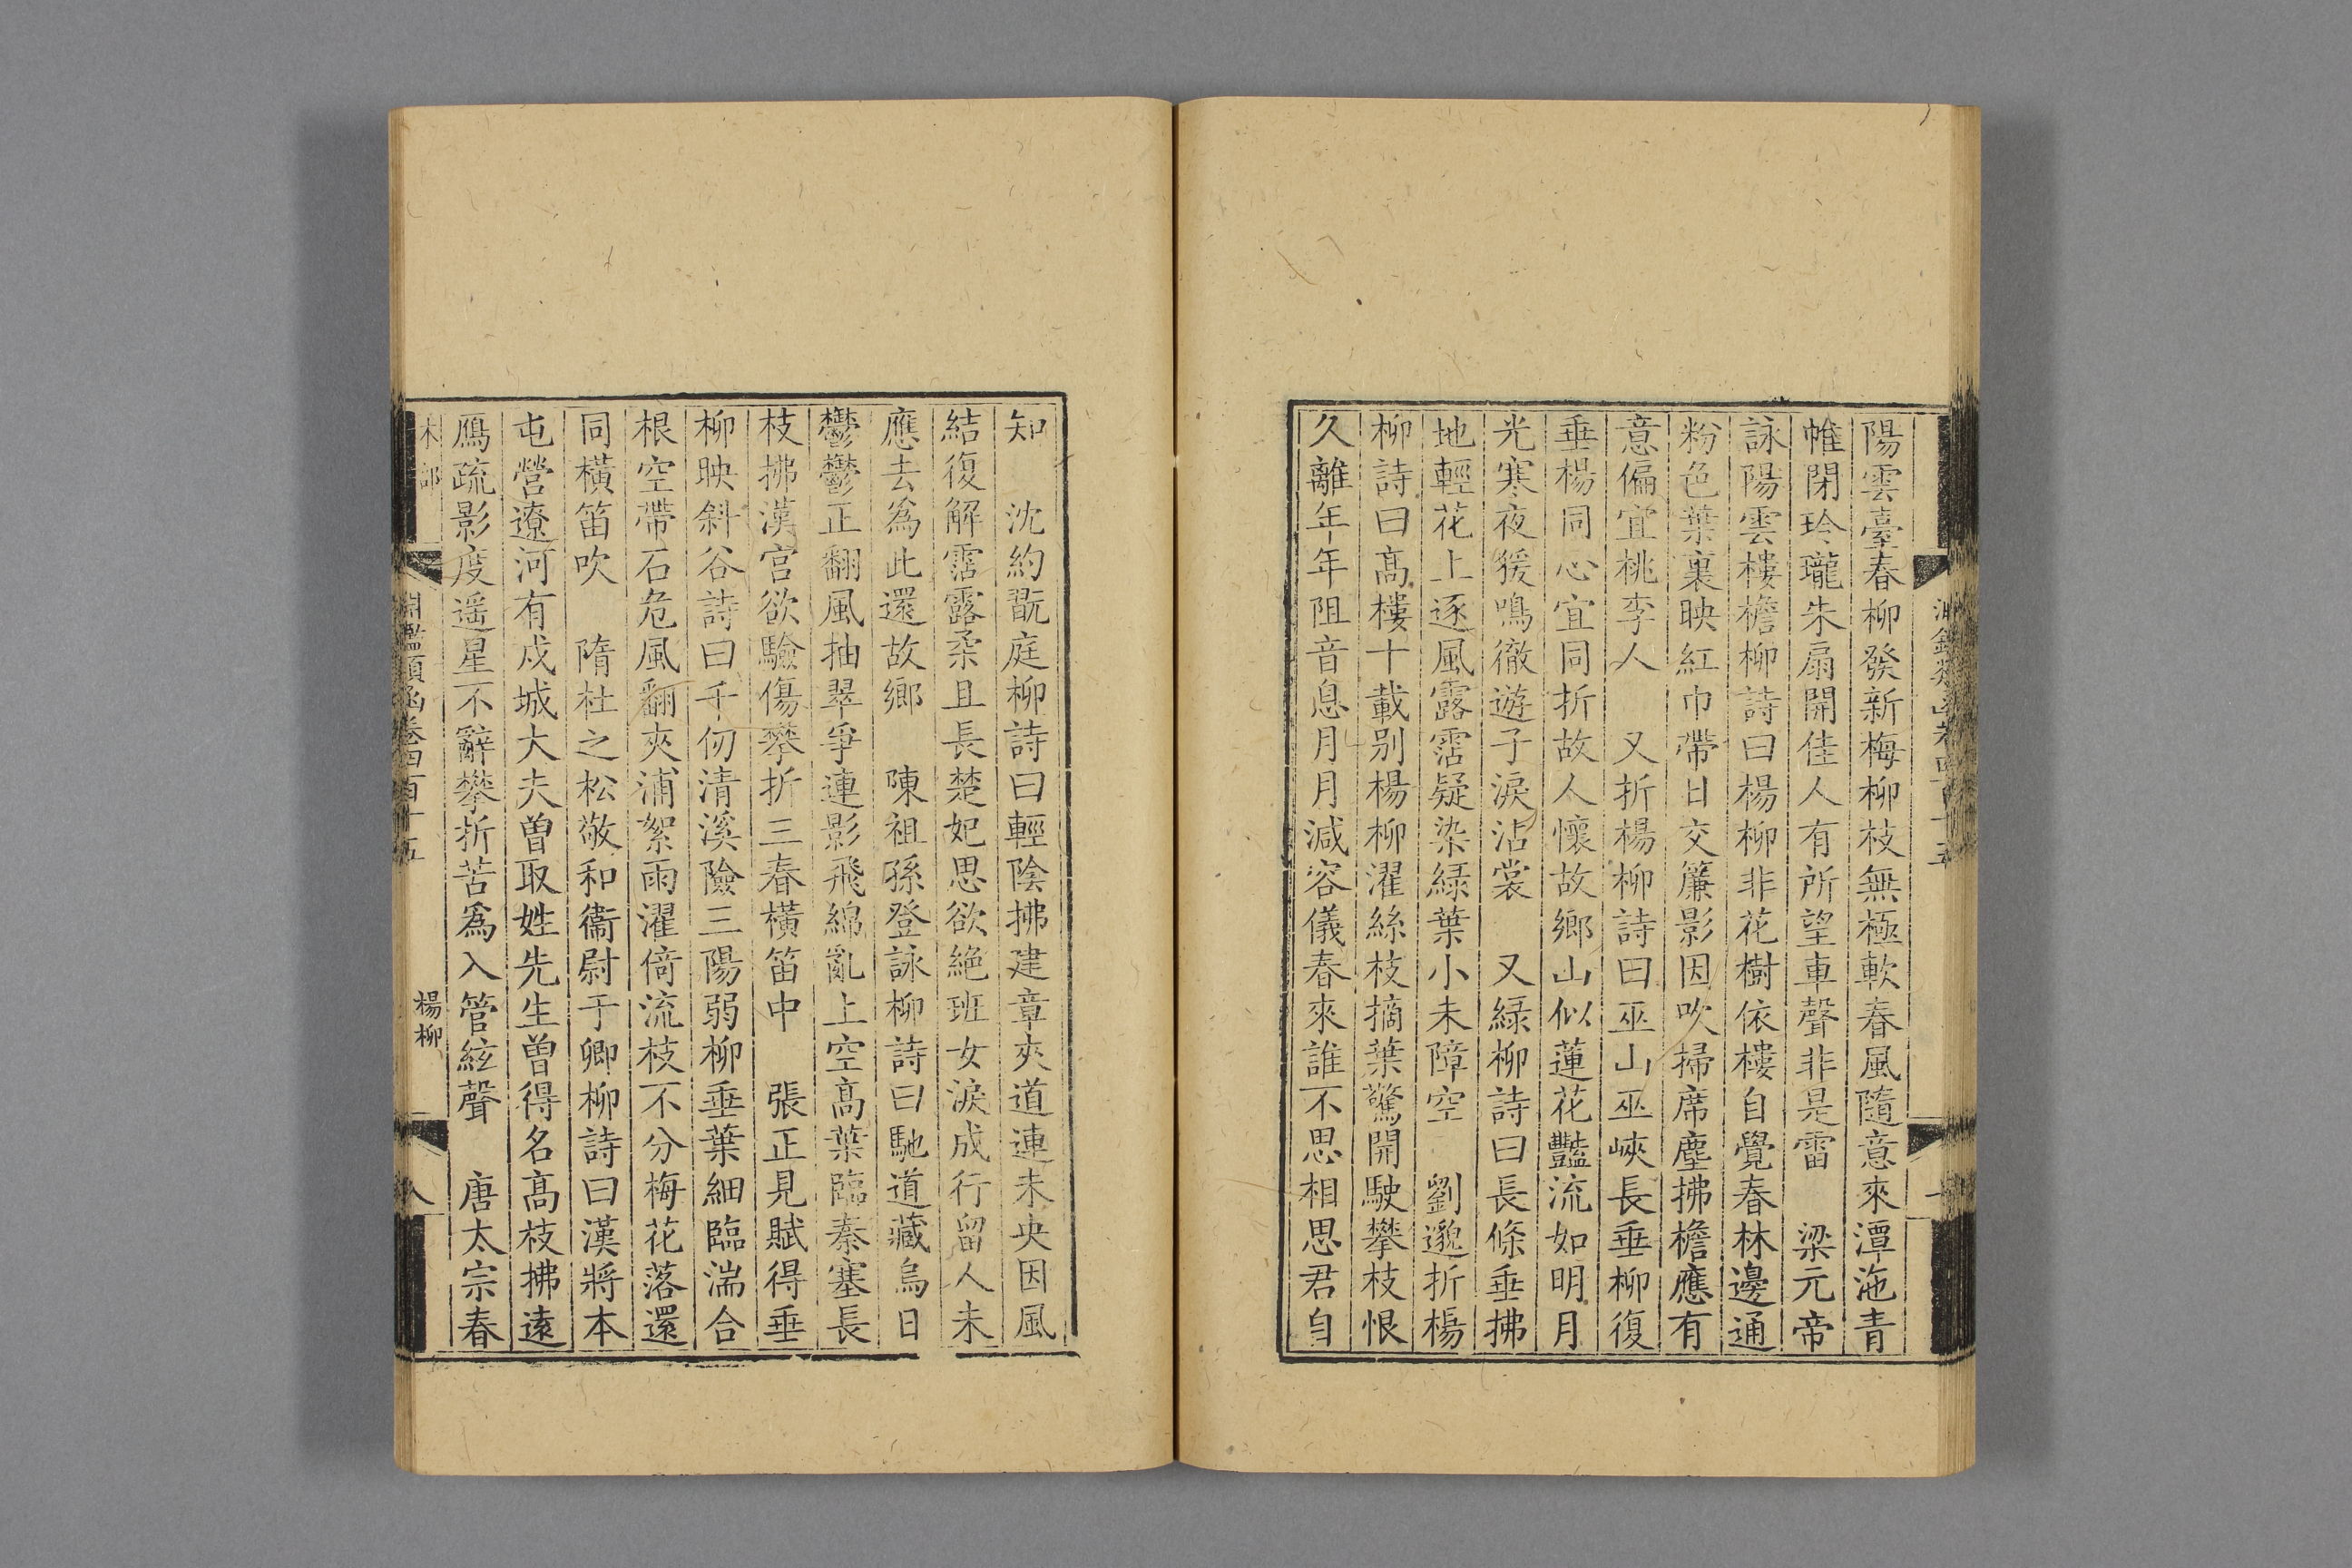 陽雲臺春柳發新梅柳枝無極軟春風隨意來潭沲青
帷閉玲瓏朱扇開佳人有所望車聲非是雷　梁元帝
詠陽雲樓檐柳詩曰楊柳非花樹依樓自覺春林邊通
粉色葉裏映紅巾帶日交簾影因吹掃席塵拂檐應有
意偏宜桃李人　又折楊柳詩曰巫山巫峽長垂柳復
垂楊同心宜同折故人懷故鄉山似蓮花豔流如明月
光寒夜猨鳴徹遊子淚沾裳　又綠柳詩曰長條垂拂
地輕花上逐風露霑疑染綠葉小未障空　劉邈折楊
柳詩曰高樓十載別楊柳濯絲枝摘葉驚開駛攀枝恨
久離年年阻音息月月減容儀春來誰不思相思君自
知　沈約翫庭柳詩曰輕陰拂建章夾道連未央因風
結復解霑露柔且長楚妃思欲絕班女淚成行留人未
應去為此還故鄉　陳祖孫登詠柳詩曰馳道藏烏日
鬱鬱正翻風抽翠爭連影飛綿亂上空高葉臨秦塞長
枝拂漢宮欲驗傷攀折三春橫笛中　張正見賦得垂
柳映斜谷詩曰千仞清溪險三陽弱柳垂葉細臨湍合
根空帶石危風翻夾浦絮雨濯倚流枝不分梅花落還
同橫笛吹　隋杜之松敬和衞尉于卿柳詩曰漢將本
屯營遼河有戍城大夫曾取姓先生曾得名高枝拂遠
鴈疏影度遥星不辭攀折苦為入管絃聲　唐太宗春
木部
淵鑑類函卷四百十五
楊柳
八